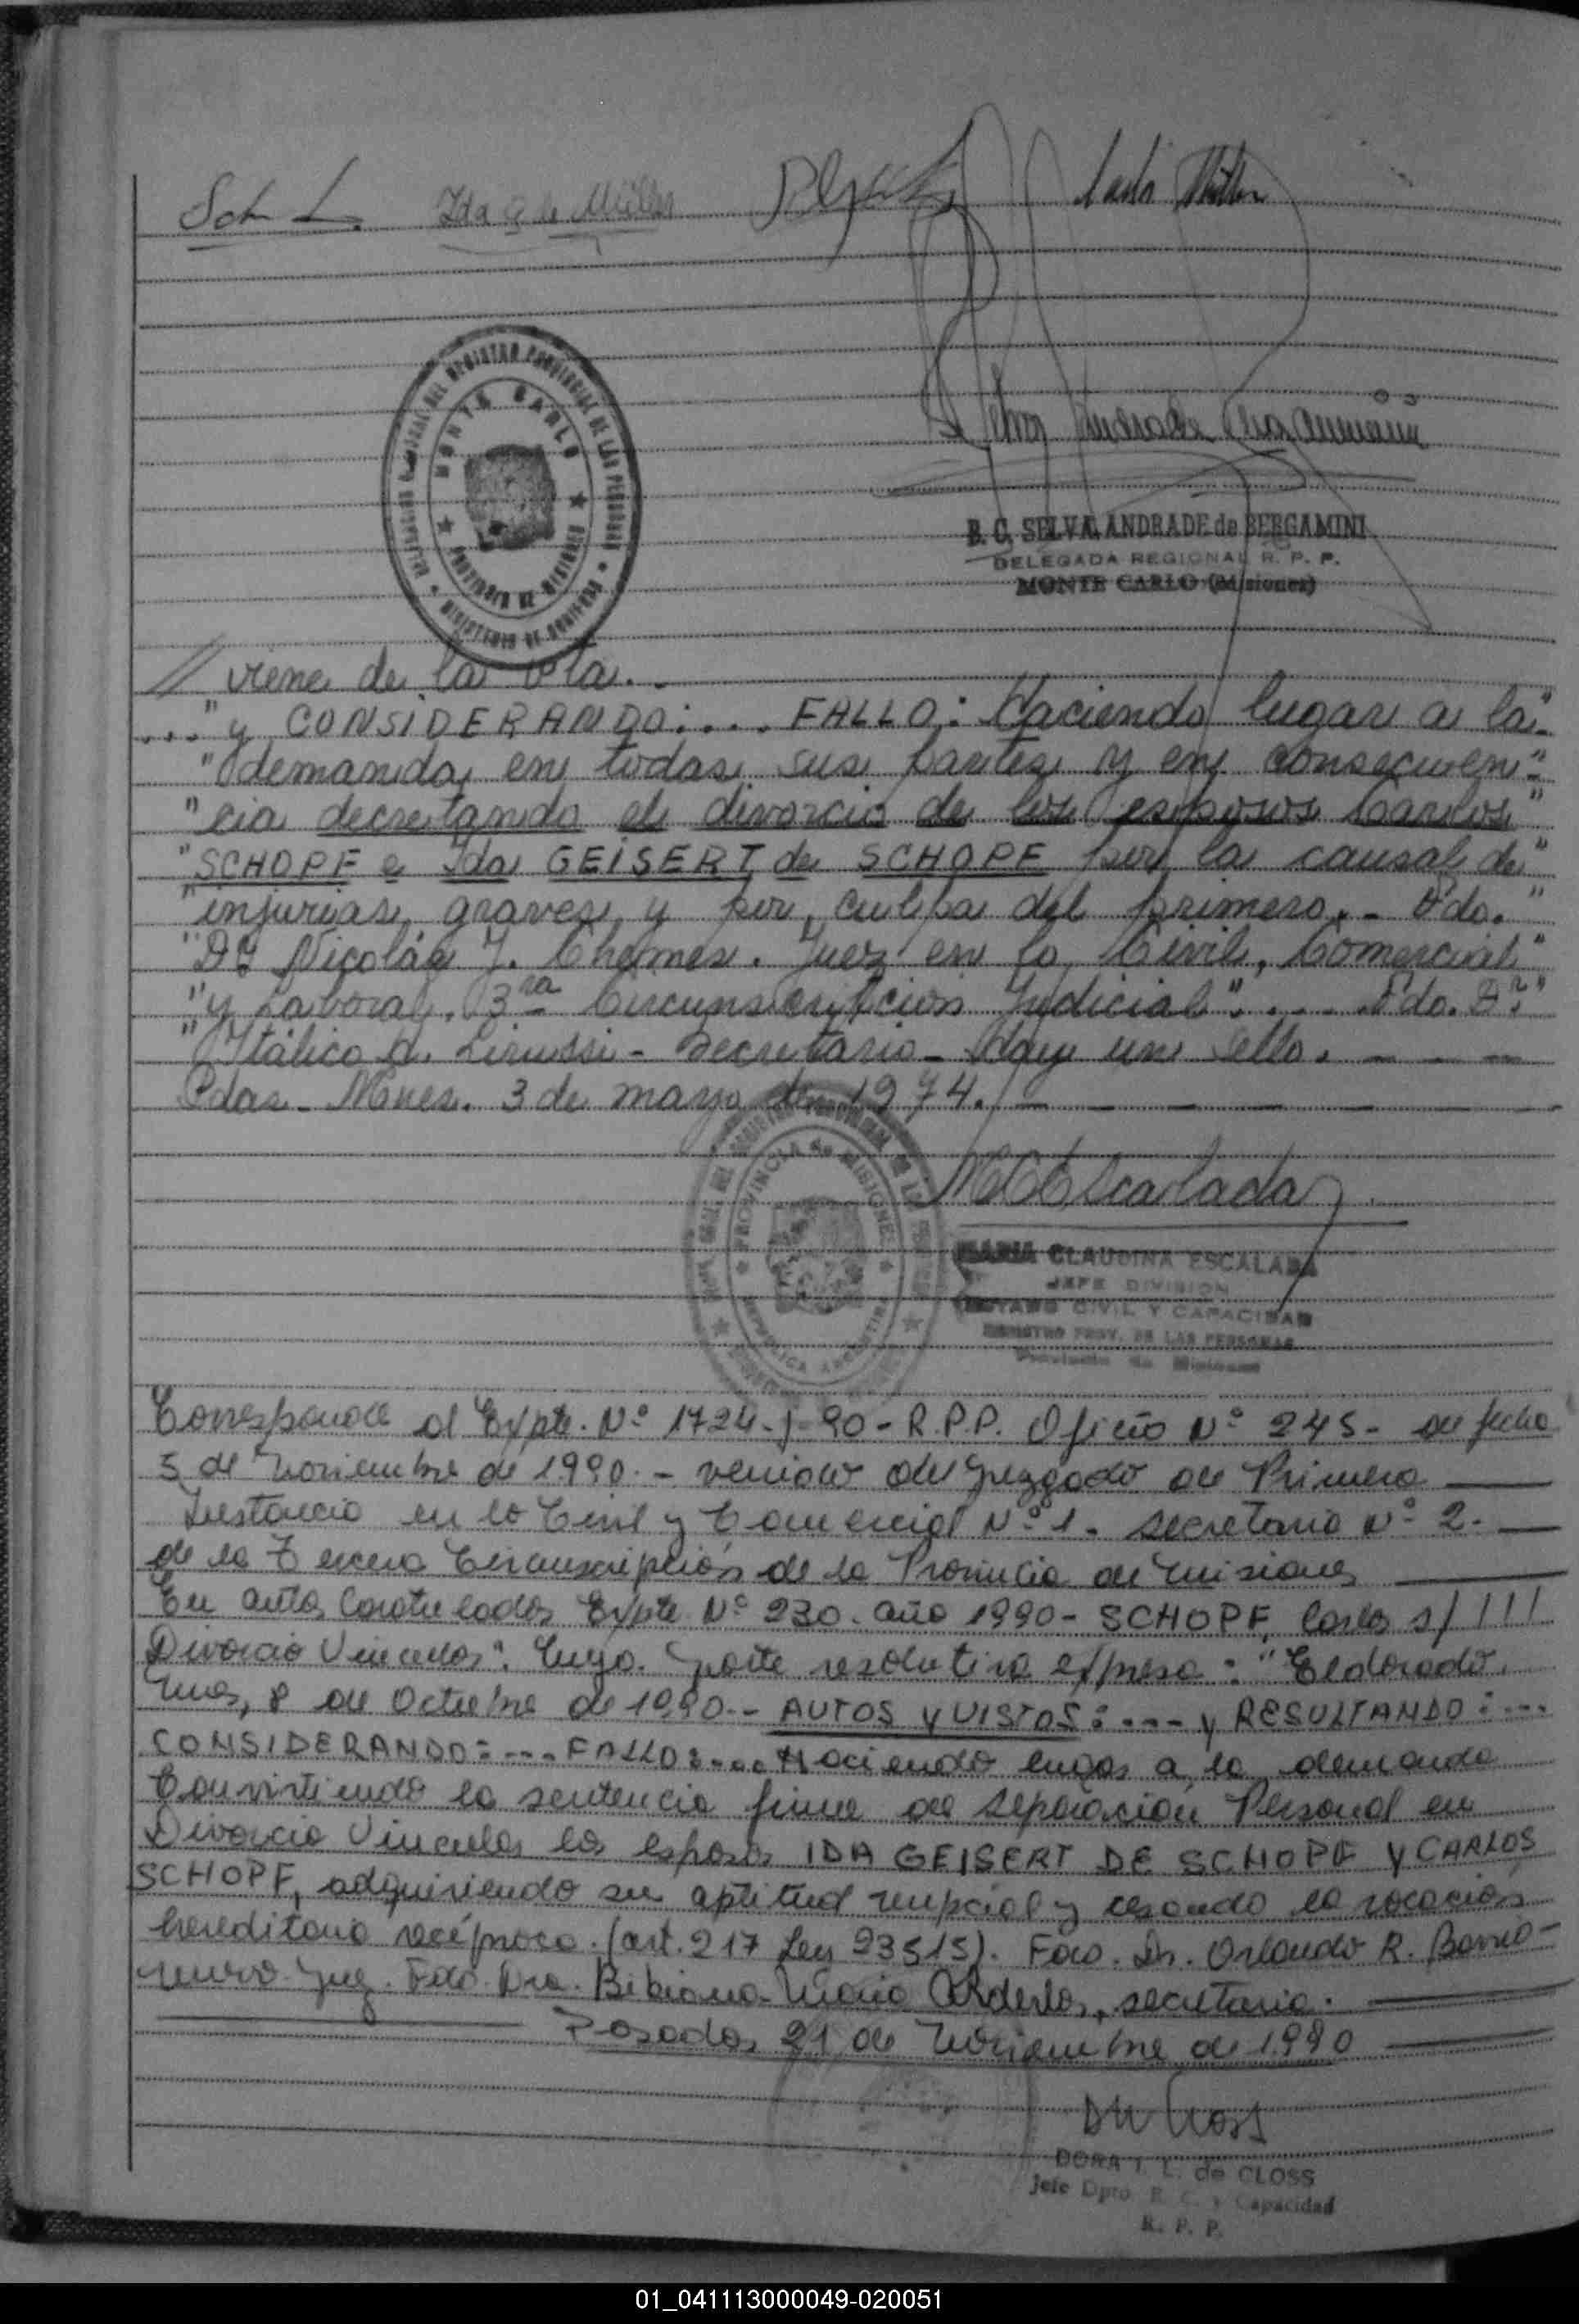 Sch
Ida G de Müller
B. C. SELVA ANDRADE de BERGAMINI
DELEGADA REGIONAL R. P. P.
MONTE CARLO (Misiones)
MONTE CARLO
PROVINCIA DE MISIONES
// viene de la vta.-
..." y CONSIDERANDO:... FALLO: Haciendo lugar a la"
"demanda en todas sus partes y en consecuen-"
"cia decretando el divorcio de los esposos Carlos"
"SCHOPF e Ida GEISERT de SCHOPF por la causal de"
"injurias graves y por culpa del primero.- Fdo."
"Dr Nicolás J. Chemes. Juez en lo Civil, Comercial"
"y Laboral. 3ra Circunscripción Judicial".... Fdo. Dr"
"Itálico A. - Secretario- Hay un sello. - - -
Pdas. Mnes. 3 de marzo de 1974. -
PROVINCIA de MISIONES
REPUBLICA ARGENTINA
MCEscalada
MARIA CLAUDINA ESCALADA
JEFE DIVISION
ESTADO CIVIL Y CAPACIDAD
REGISTRO PROV. DE LAS PERSONAS
Provincia de Misiones
Corresponde al Expte. Nº 1724-J-90-R.P.P. Oficio Nº 245- de fecha
5 de Noviembre de 1990.- venido del Juzgado de Primera
Instancia en lo Civil y Comercial Nº 1. Secretaria Nº 2.
de la Tercera Circunscripción de la Provincia de Misiones
En autos Caratulados Expte. Nº 230. año 1990- SCHOPF, Carlos s/ ///
Divorcio Vincular". Cuya. parte resolutiva expresa: "Eldorado.
Mnes, 8 de Octubre de 1990.- AUTOS y VISTOS:... y RESULTANDO:...
CONSIDERANDO:... FALLO:... Haciendo lugar a la demanda
Convirtiendo la sentencia firme de separación Personal en
Divorcio Vincular los esposos IDA GEISERT DE SCHOPF y CARLOS
SCHOPF, adquiriendo su aptitud nupcial y cesando la vocación
hereditaria recíproca. (art. 217 Ley 23515). Fdo. Dr. Orlando R. Barrio-
nuevo. Juez. Fdo. Dra. Bibiana Maria , secretaria.
Posadas 21 de Noviembre de 1990
DORA I. L. de CLOSS
Jefe Dpto. R. C. y Capacidad
R. P. P.
01_041113000049-020051